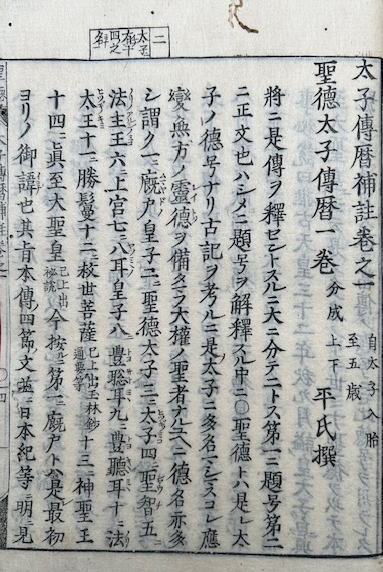 二
太子
存十
四之
太子傳暦補註卷之一 自太子入胎 至五歳
聖德太子傳暦一卷 分成 上下 平氏撰
將ニ是傳ヲ釋セントスルニ大ニ分テニトス第一ニ題号第二
ニ正文也ハシメニ題号ヲ解釋スル中ニ〇聖德トハ是レ太
子ノ德号ナリ古記ヲ考ルニ是太子ニ多名一シスコレ應
變無方ノ靈德ヲ備タラ大權ノ聖者ナル公ニ德名亦多
シ謂ク一ニ廐戸皇子二ニ聖德太子三ニ太子四ニ聖智五ニ
法主王六ニ上宮七ニ八耳皇子八ニ豊聡耳九ニ豊聽耳十ニ法
太王十一ニ勝鬘十二ニ救世菩薩 已上出玉林鈔 通要等 十三ニ神聖王
十四ニ眞至大聖皇 已上出 秘説 今按ニ第一ニ廐戸トハ是最初
ヨリノ御諱也其旨本傳四節文並ニ日本紀等ニ明ニ見